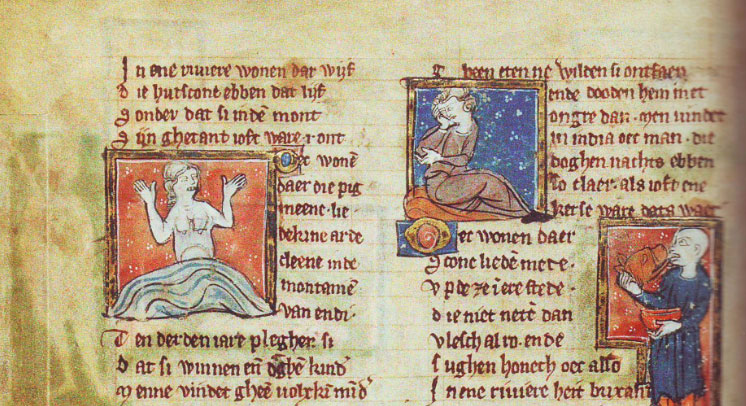 In ene riuiere wonen dar wijf
die hutscone ebben dat lijf
Sonder dat si indē mont
Sijn ghetant ioft ware .i. ont
Oec wonē
daer die pig
meene. lie
dekine arde
cleene inde
montanie
van endi.
Ten derden iare pleghen si
Dat si winnen eñ kind
Menne vindet gheē volxkī mīd
been eten ne wilden si ontfaen
ende dooden hem met
ongre dan. men vindet
in india oec man. die
doghen nachts ebben
so claer. als ioft ene
kerse ware dats waer
Oec wonen daer
Scone liedē mete.
vp de zeiere stede.
die niet netē dan
vlesch al ro. ende
sughen honech oec also
In ene riuiere heit